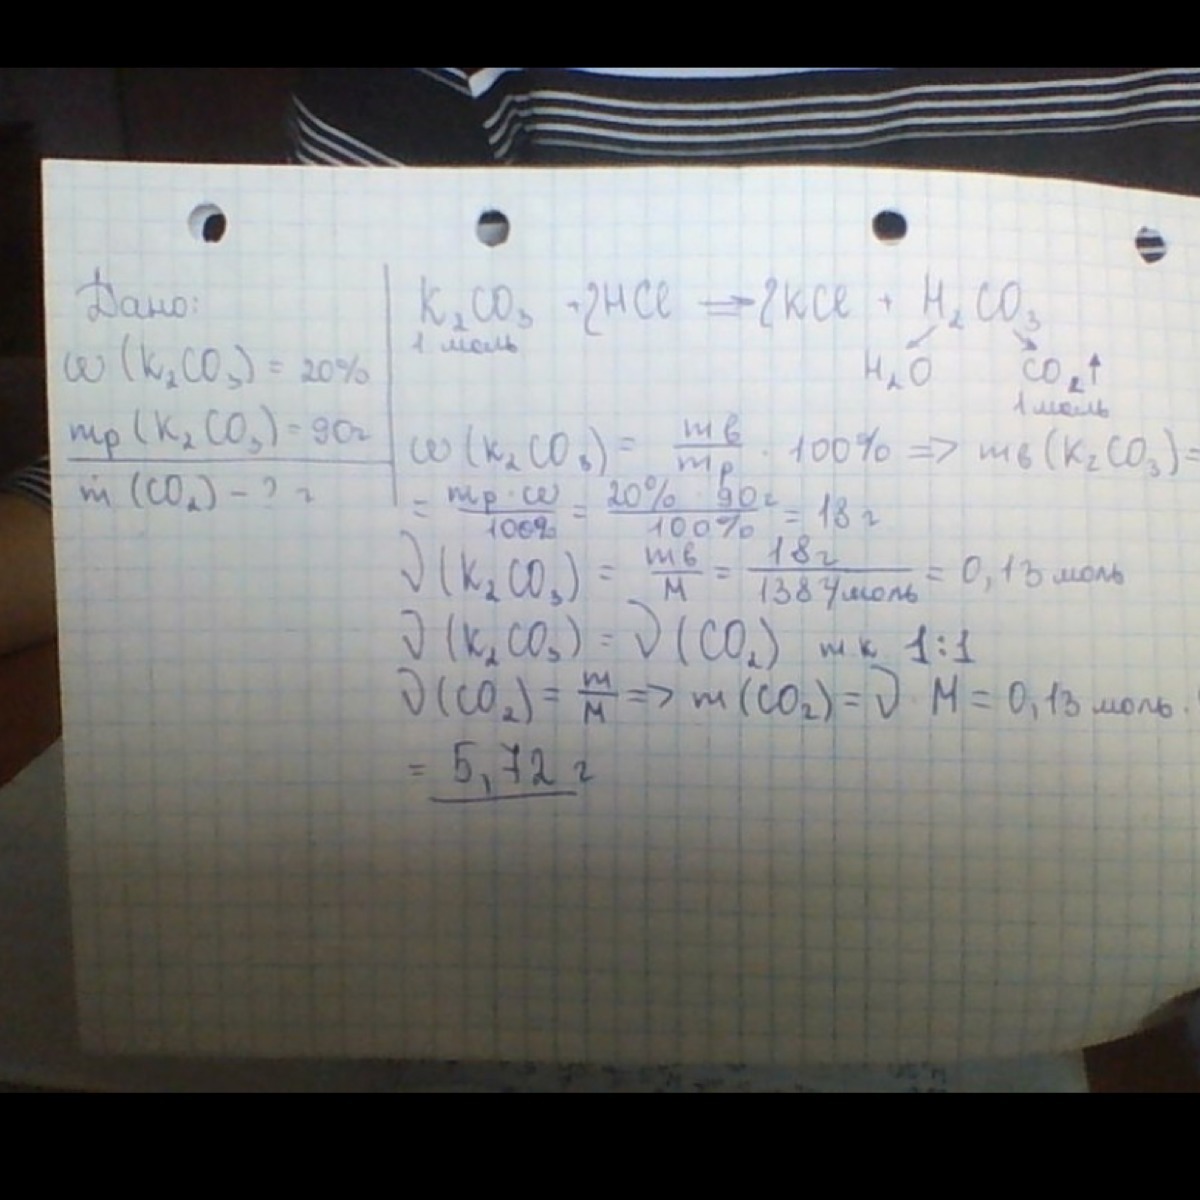 Дано:
ω (K₂CO₃) = 20%
mр (K₂CO₃) = 90г
m (CO₂) – ? г
K₂CO₃ + 2HCl => 2KCl + H₂CO₃
1 моль
H₂O CO₂↑
1 моль
ω (K₂CO₃) = mв/mр · 100% => mв (K₂CO₃) =
= mр · ω/100% = 20% · 90г/100% = 18 г
ν (K₂CO₃) = mв/M = 18г/138г/моль = 0,13 моль
ν (K₂CO₃) = ν (CO₂) т к 1:1
ν (CO₂) = m/M => m (CO₂) = ν · M = 0,13 моль ·
= 5,72 г